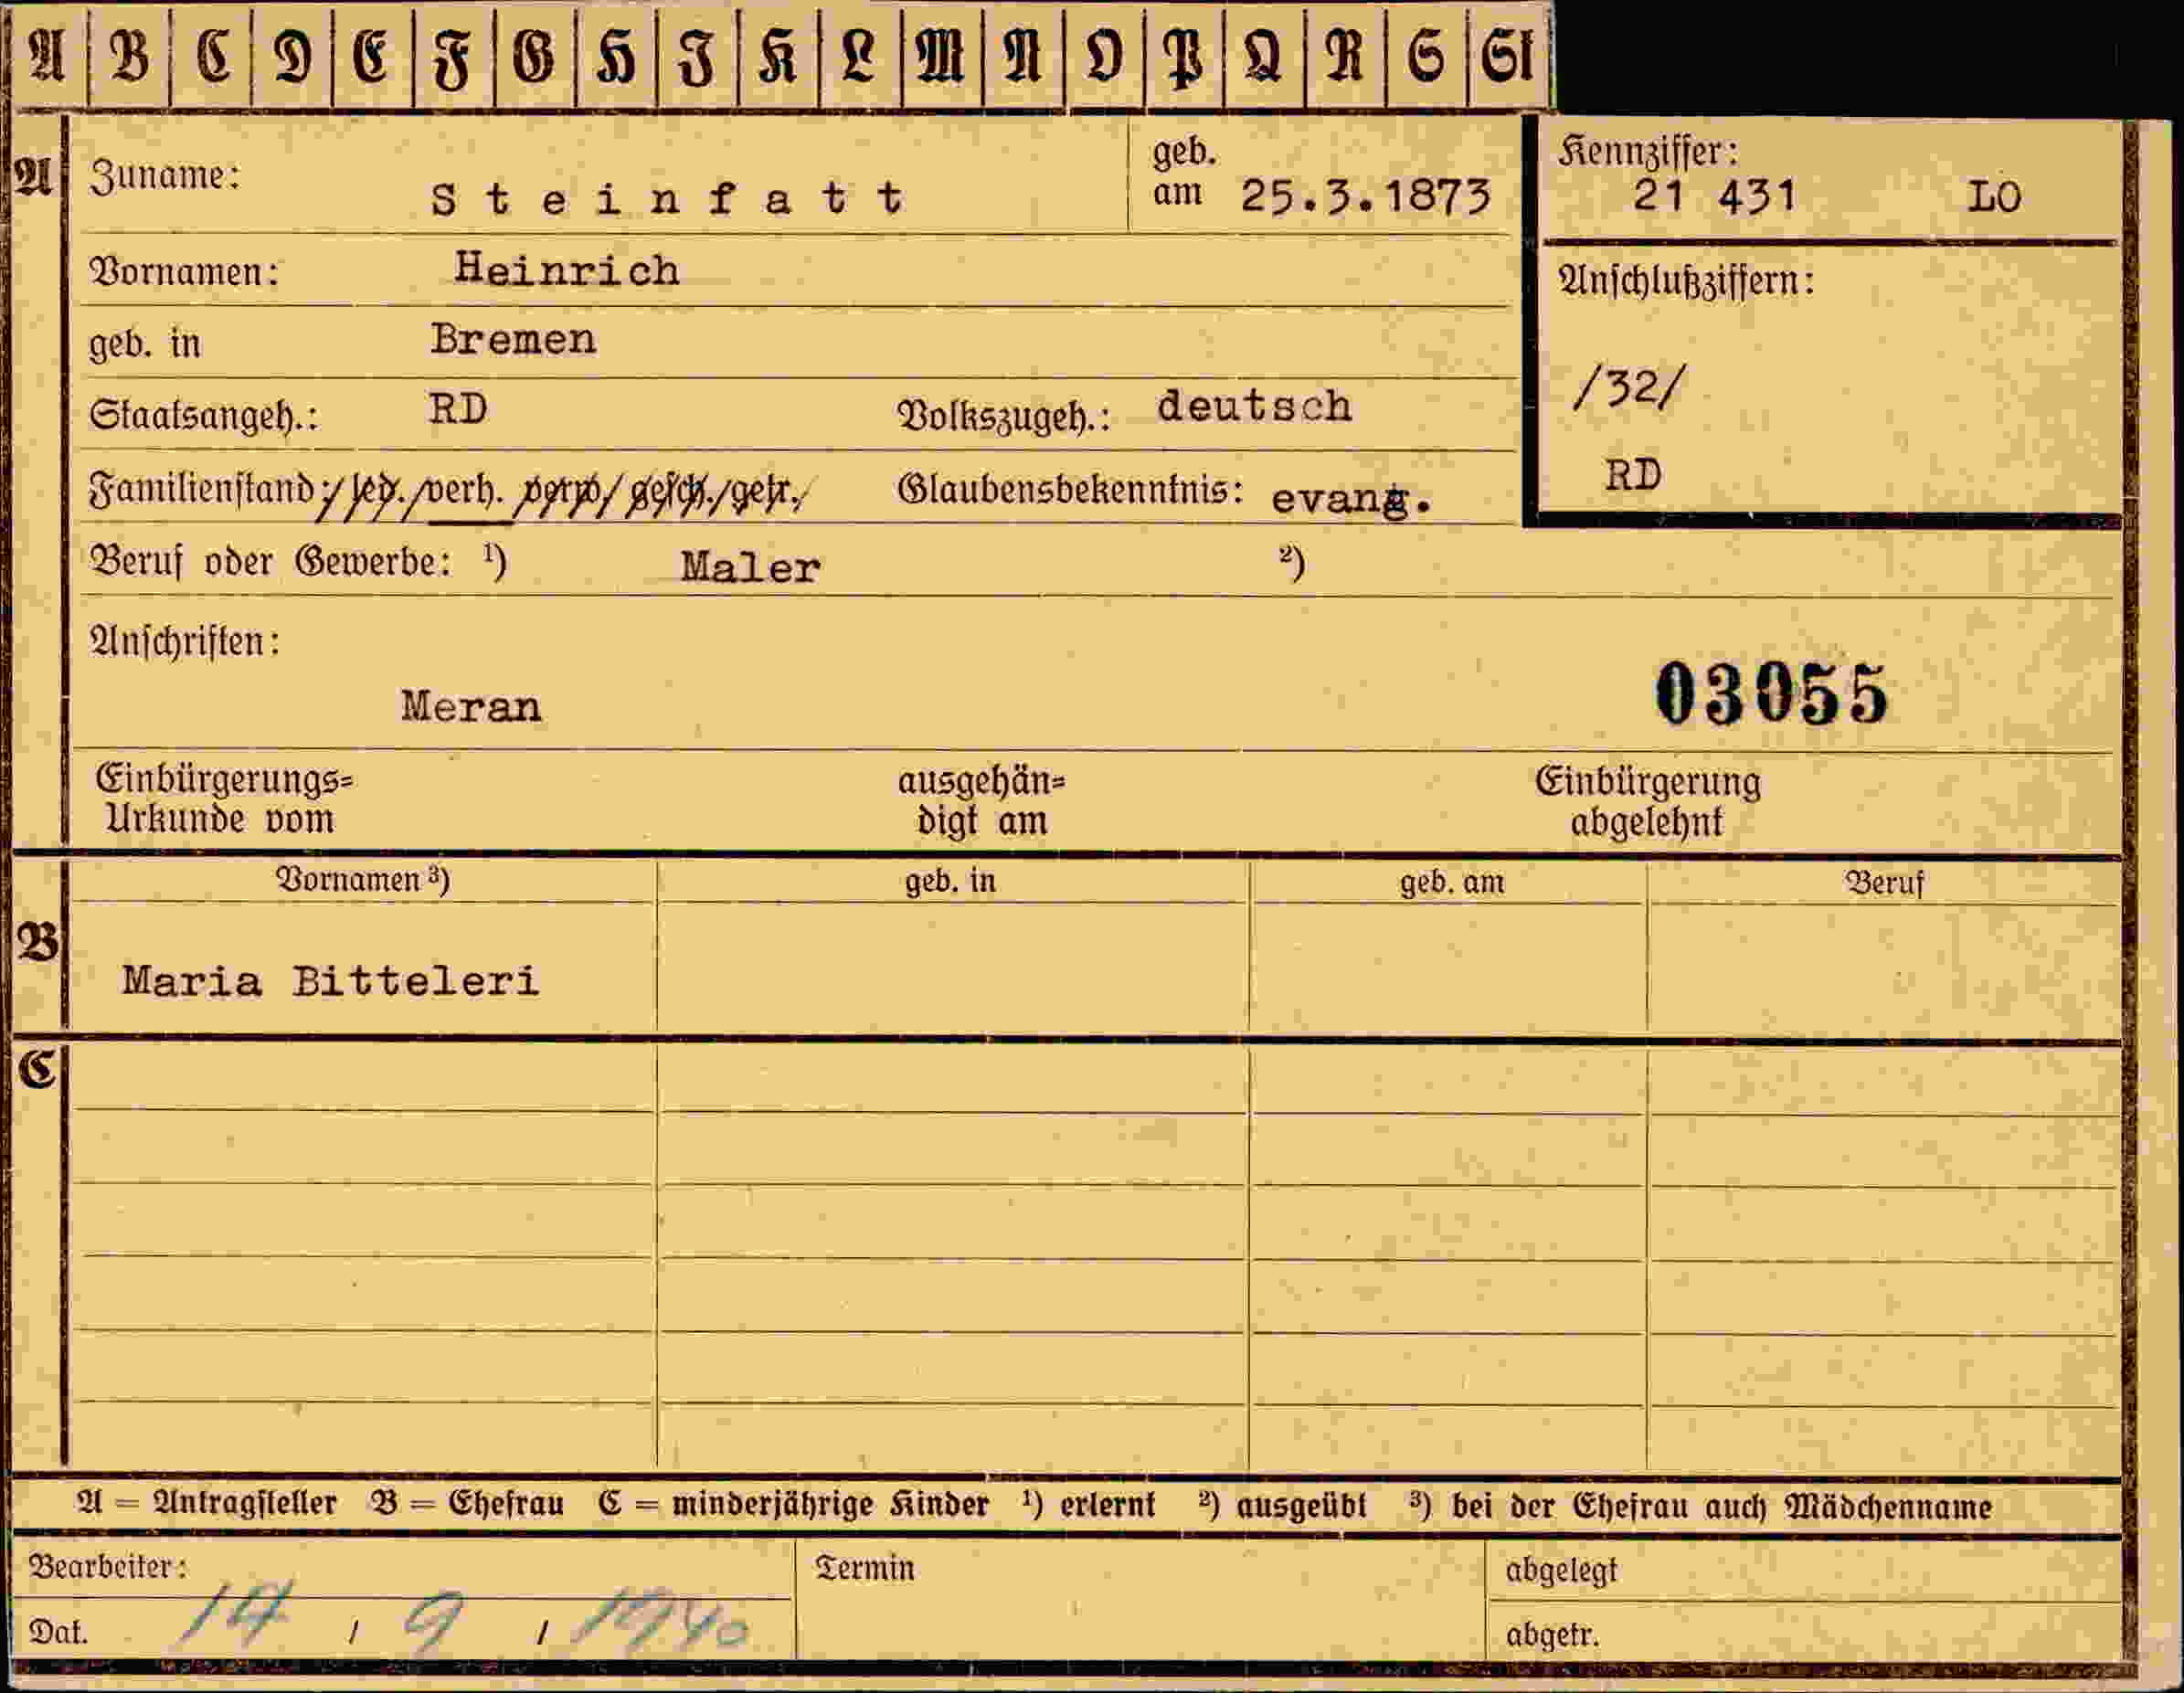 A B C D E F G H I K L M N O P Q R S St
A
Zuname: Steinfatt geb. am 25.3.1873
Kennziffer: 21 431 LO
Vornamen: Heinrich
Anschlußziffern:
geb. in Bremen
/32/
Staatsangeh.: RD Volkszugeh.: deutsch
RD
Familienstand: / led. / verh. verw / gesch. / getr. / Glaubensbekenntnis: evang.
Beruf oder Gewerbe: ¹) Maler ²)
Anschriften:
Meran
03055
Einbürgerungs= Urkunde vom ausgehän= digt am Einbürgerung abgelehnt
B
Vornamen ³) geb. in geb. am Beruf
Maria Bitteleri
C
A = Antragsteller B = Ehefrau C = minderjährige Kinder ¹) erlernt ²) ausgeübt ³) bei der Ehefrau auch Mädchenname
Bearbeiter: Termin abgelegt
Dat. 14 / 9 / 1940 abgetr.